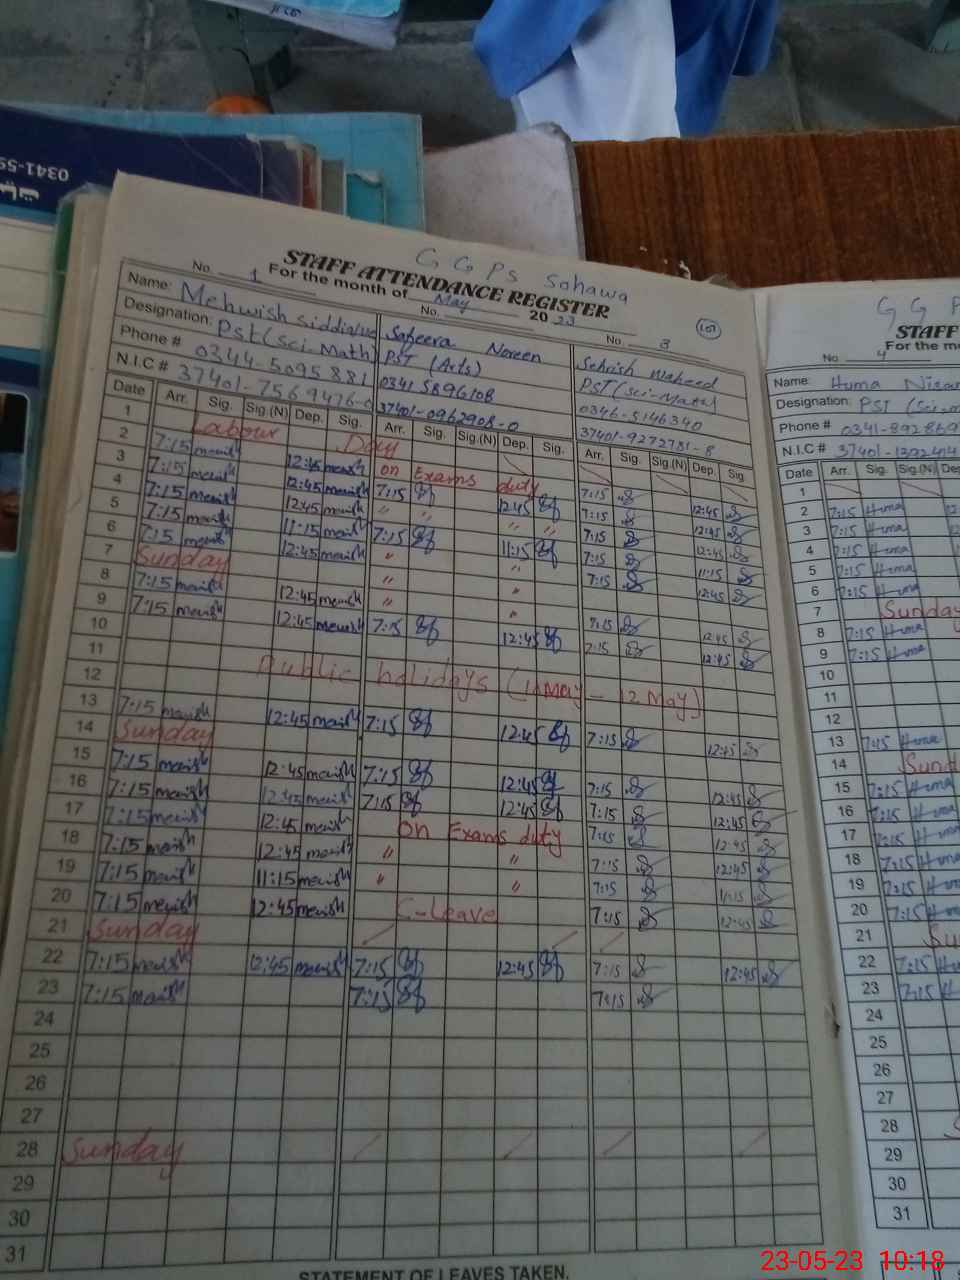 0341-55
G G P S Sohawa
STAFF ATTENDANCE REGISTER
For the month of May 2023
No. 1
No.
No. 3
Name: Mehwish Siddi
Designation: Pst (Sci-Math)
Phone # 0344-5095881
N.I.C # 37401-7569476-
Safeera Noreen
PST (Arts)
0341 5896108
37401-0962908-0
Sehrish Waheed
PST (Sci-Math)
0346-5146340
37401-9272781-8
Date Arr. Sig. Sig.(N) Dep. Sig. Arr. Sig. Sig.(N) Dep. Sig. Arr. Sig. Sig.(N) Dep. Sig
1 Labour Day
2 7:15 mevish 12:45 mevish on Exams duty 7:15 12:45
3 7:15 mevish 12:45 mevish 7:15 12:45 7:15 12:45
4 7:15 mevish 12:45 mevish " " " " 7:15 12:45
5 7:15 mevish 11:15 mevish 7:15 11:15 7:15 11:15
6 7:15 mevish 12:45 mevish " " 7:15 12:45
7 Sunday " "
8 7:15 mevish 12:45 mevish " " 7:15 12:45
9 7:15 mevish 12:45 mevish 7:15 12:45 7:15 12:45
10
11 Public holidays (10 May - 12 May)
12
13 7:15 mevish 12:45 mevish 7:15 12:45 7:15 12:45
14 Sunday
15 7:15 mevish 12:45 mevish 7:15 12:45 7:15 12:45
16 7:15 mevish 12:45 mevish 7:15 12:45 7:15 12:45
17 7:15 mevish 12:45 mevish on Exams duty 7:15 12:45
18 7:15 mevish 12:45 mevish " " 7:15 12:45
19 7:15 mevish 11:15 mevish " " 7:15 11:15
20 7:15 mevish 12:45 mevish C-Leave 7:15 12:45
21 Sunday
22 7:15 mevish 12:45 mevish 7:15 12:45 7:15 12:45
23 7:15 mevish 7:15 7:15
24
25
26
27
28 Sunday
29
30
31
STATEMENT OF LEAVES TAKEN.
G G P
STAFF
For the mo
No 4
Name: Huma Nisar
Designation: PST (Sci-m
Phone # 0341-892869
N.I.C # 37401-1392414
Date Arr. Sig. Sig.(N) Dep
1
2 7:15 Huma 12
3 7:15 Huma
4 7:15 Huma
5 7:15 Huma
6 7:15 Huma
7 Sunday
8 7:15 Huma
9 7:15 Huma
10
11
12
13 7:15 Huma
14 Sund
15 7:15 Huma
16 7:15 Huma
17 7:15 Huma
18 7:15 Huma
19 7:15 Huma
20 7:15 Huma
21 Su
22 7:15 Hum
23 7:15 Hum
24
25
26
27
28 S
29
30
31
23-05-23 10:18